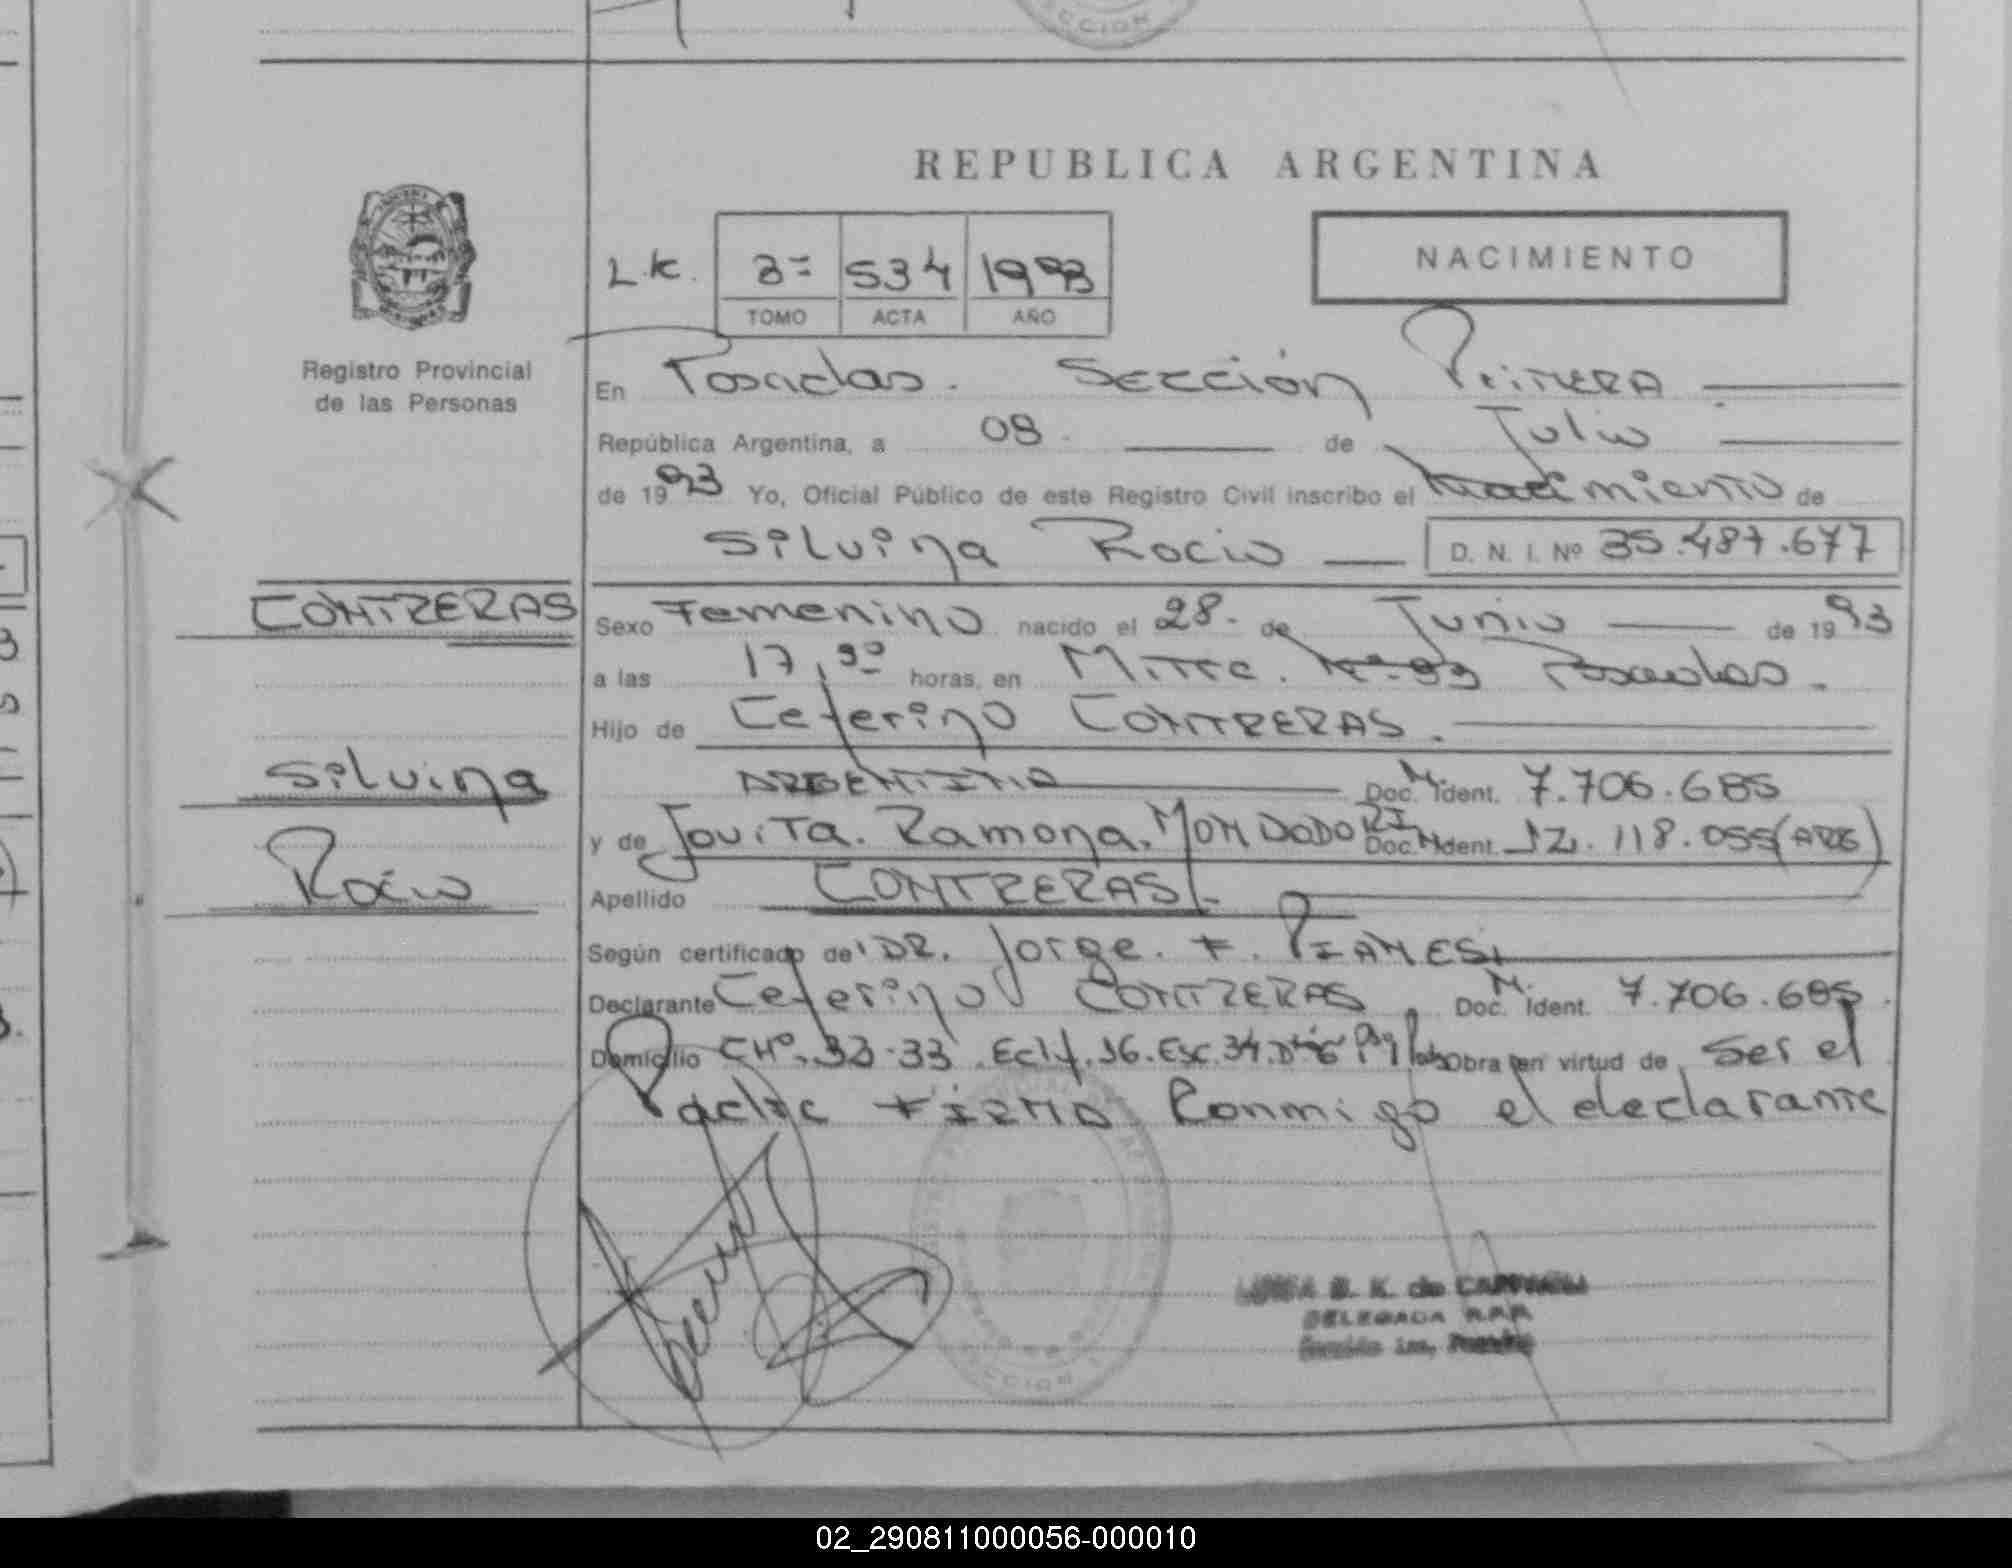 SECCION
REPUBLICA ARGENTINA
NACIMIENTO
L.K. 3= 534 1993
TOMO ACTA AÑO
Registro Provincial
de las Personas
En Posadas. Sección Primera
República Argentina, a 08. de Julio
de 1993 Yo, Oficial Público de este Registro Civil inscribo el Nacimiento de
Silvina Rocio D. N. I. Nº 35.487.677
CONTRERAS
Sexo Femenino nacido el 28. de Junio de 1993
a las 17,30 horas, en Mitre. Nº Posadas.
Hijo de Ceferino CONTRERAS.
Silvina
ARGENTINO Doc. M. Ident. 7.706.685
y de Jovita. Ramona. MONDADORI Doc. M Ident. 12.118.055 (ARG)
Rocio
Apellido CONTRERAS.
Según certificado de DR. Jorge. F. PIANESI
Declarante Ceferino CONTRERAS Doc. M. Ident. 7.706.685.
Domicilio CHº. 32-33. Edif. 16. Esc. 34. Obra en virtud de Ser el
Padre FIRMA Conmigo el declarante
SECCION
B. K. de
DELEGADA R.P.P.
Sección 1ra, Posadas
02_290811000056-000010